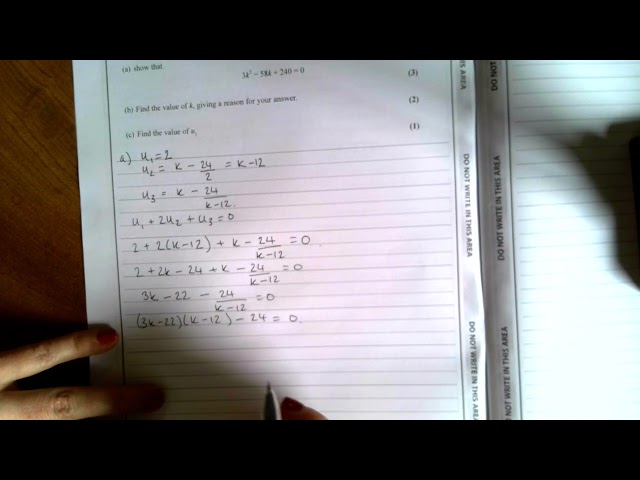 (a) show that
3k² – 58k + 240 = 0
(3)
(b) Find the value of k, giving a reason for your answer.
(2)
(c) Find the value of u₁
(1)
a) u₁ = 2
u₂ = k - 24/2 = k - 12
u₃ = k - 24/(k-12).
u₁ + 2u₂ + u₃ = 0
2 + 2(k-12) + k - 24/(k-12) = 0
2 + 2k - 24 + k - 24/(k-12) = 0
3k - 22 - 24/(k-12) = 0
(3k-22)(k-12) - 24 = 0.
S AREA
DO NOT WRITE IN THIS AREA
DO NOT WRITE IN THIS AREA
DO NO
DO NOT WRITE IN THIS AREA
DO NOT WRITE IN THIS AREA